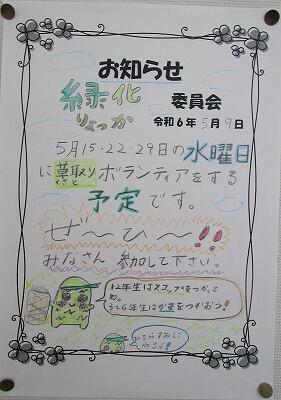 お知らせ
緑化
りょっか
委員会
令和6年5月9日
5月15・22・29日の水曜日
に草取りボランティアをする
予定です。
ぜ〜ひ〜!!
みなさん 参加して下さい。
1・2年生はスコップをつかって
ね。
3〜6年生はかまをつかおう!
ひるやすみに
やるよ!!